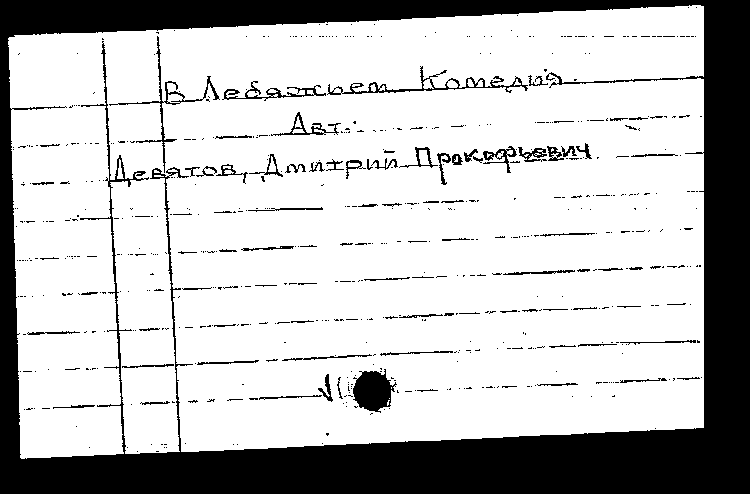 В Лебяжьем Комедия.
Авт.:
Девятов, Дмитрий Прокофьевич